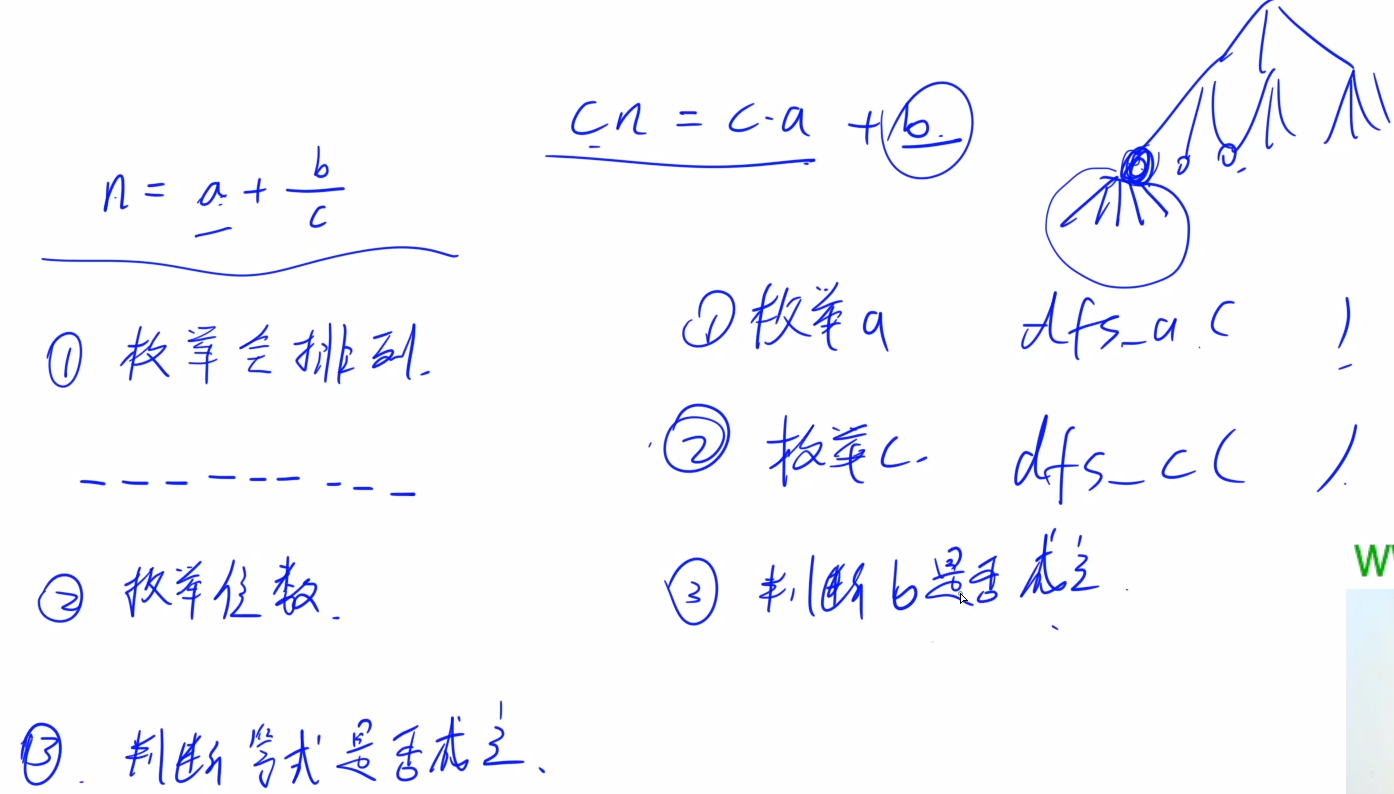 n = a + b/c
① 枚举全排列.
② 枚举位数.
③. 判断等式是否成立、
cn = c·a + b
① 枚举a dfs_a( )
② 枚举c. dfs_c( )
③ 判断b是否成立.